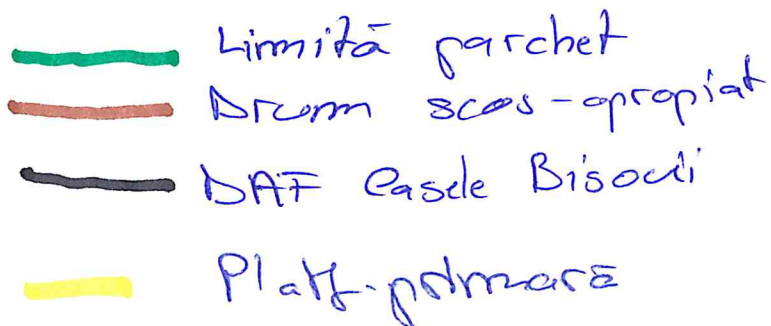 Limită parchet
Drum scos-apropiat
DAF Casele Bisocii
Platf. primară